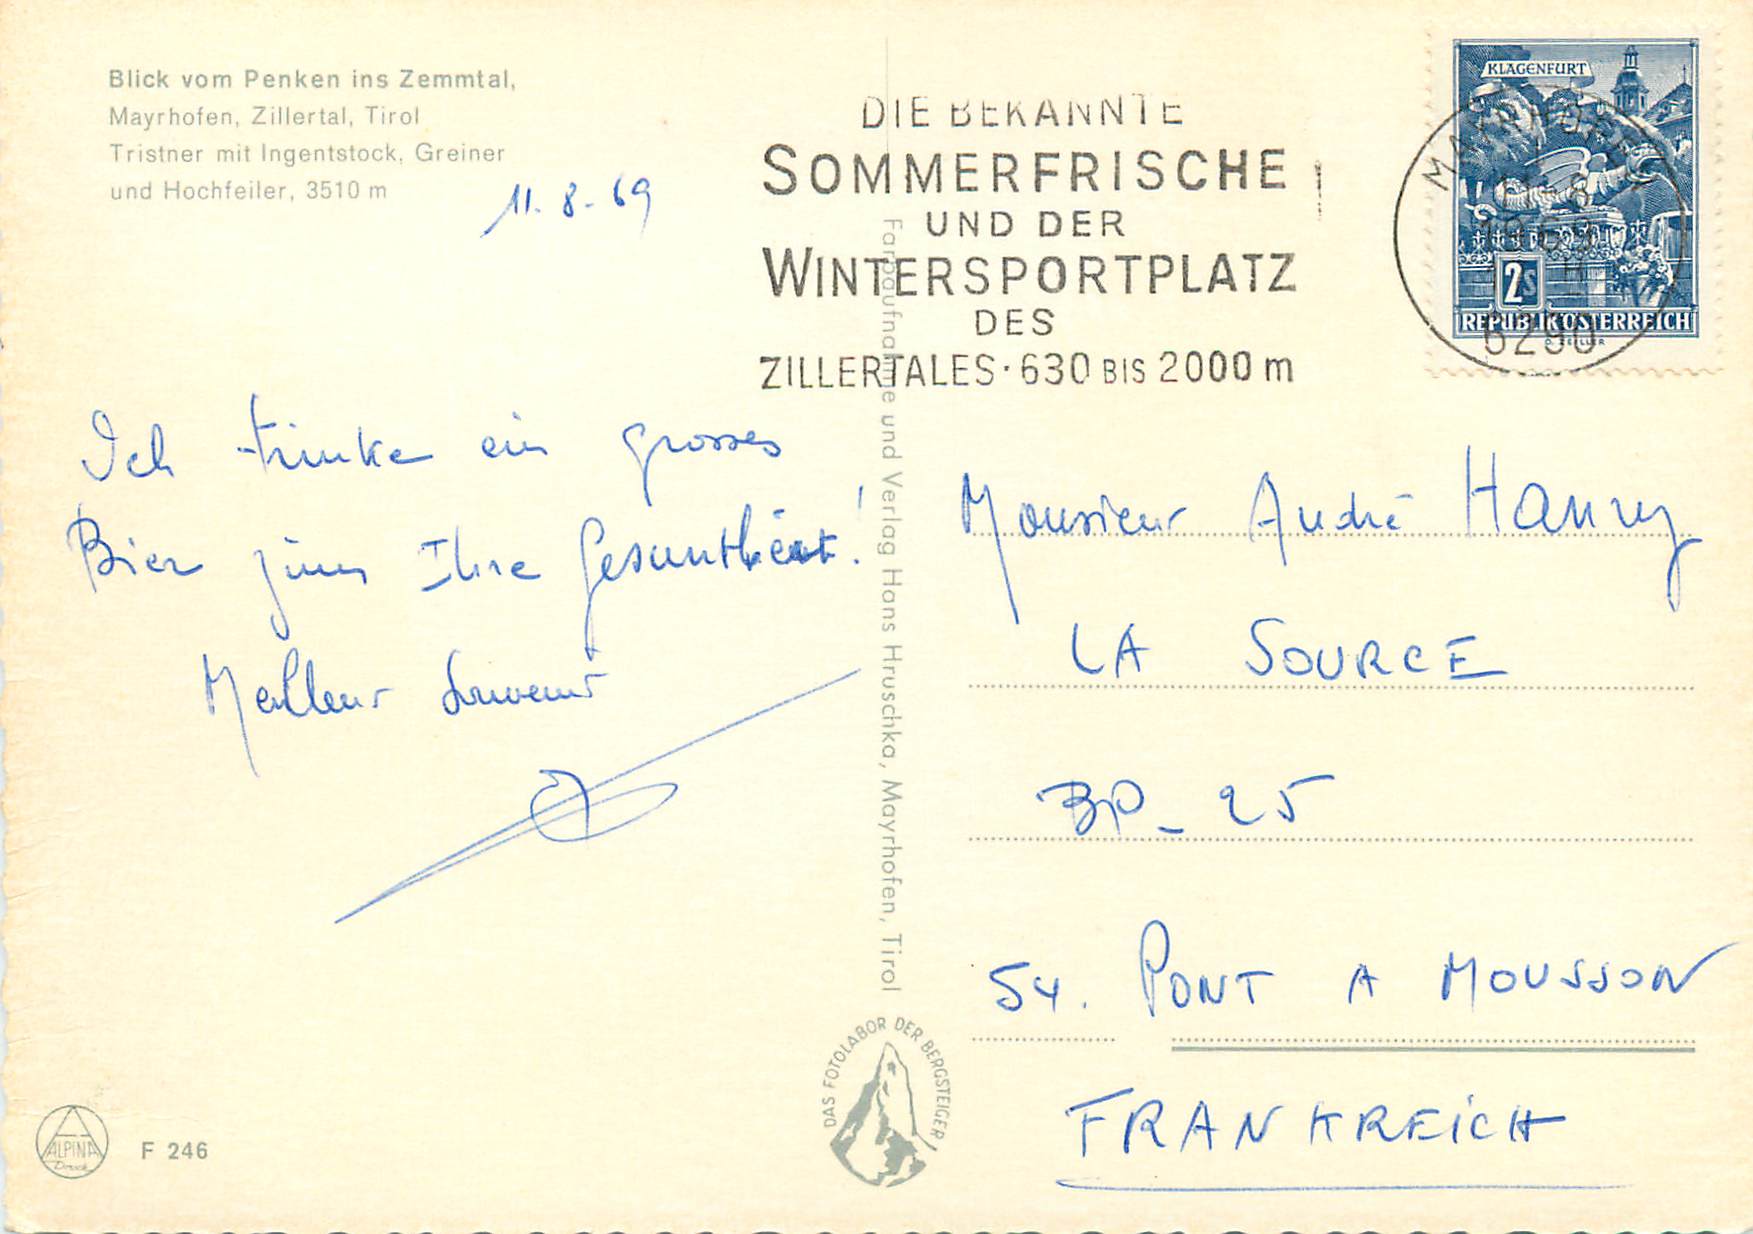 Blick vom Penken ins Zemmtal,
Mayrhofen, Zillertal, Tirol
Tristner mit Ingentstock, Greiner
und Hochfeiler, 3510 m
11.8-69
Ich trinke ein grosses
Bier zum Ihre Gesuntheit!
Meilleur Souvenir
DIE BEKANNTE
SOMMERFRISCHE
UND DER
WINTERSPORTPLATZ
DES
ZILLERTALES · 630 BIS 2000 m
KLAGENFURT
2S
REPUBLIK ÖSTERREICH
MAYRHOFEN
1969
6290
Farbaufnahme und Verlag Hans Hruschka, Mayrhofen, Tirol
Monsieur André Hanry
LA SOURCE
BP_25
54. PONT A MOUSSON
FRANKREICH
DAS FOTOLABOR DER BERGSTEIGER
ALPINA
Druck
F 246